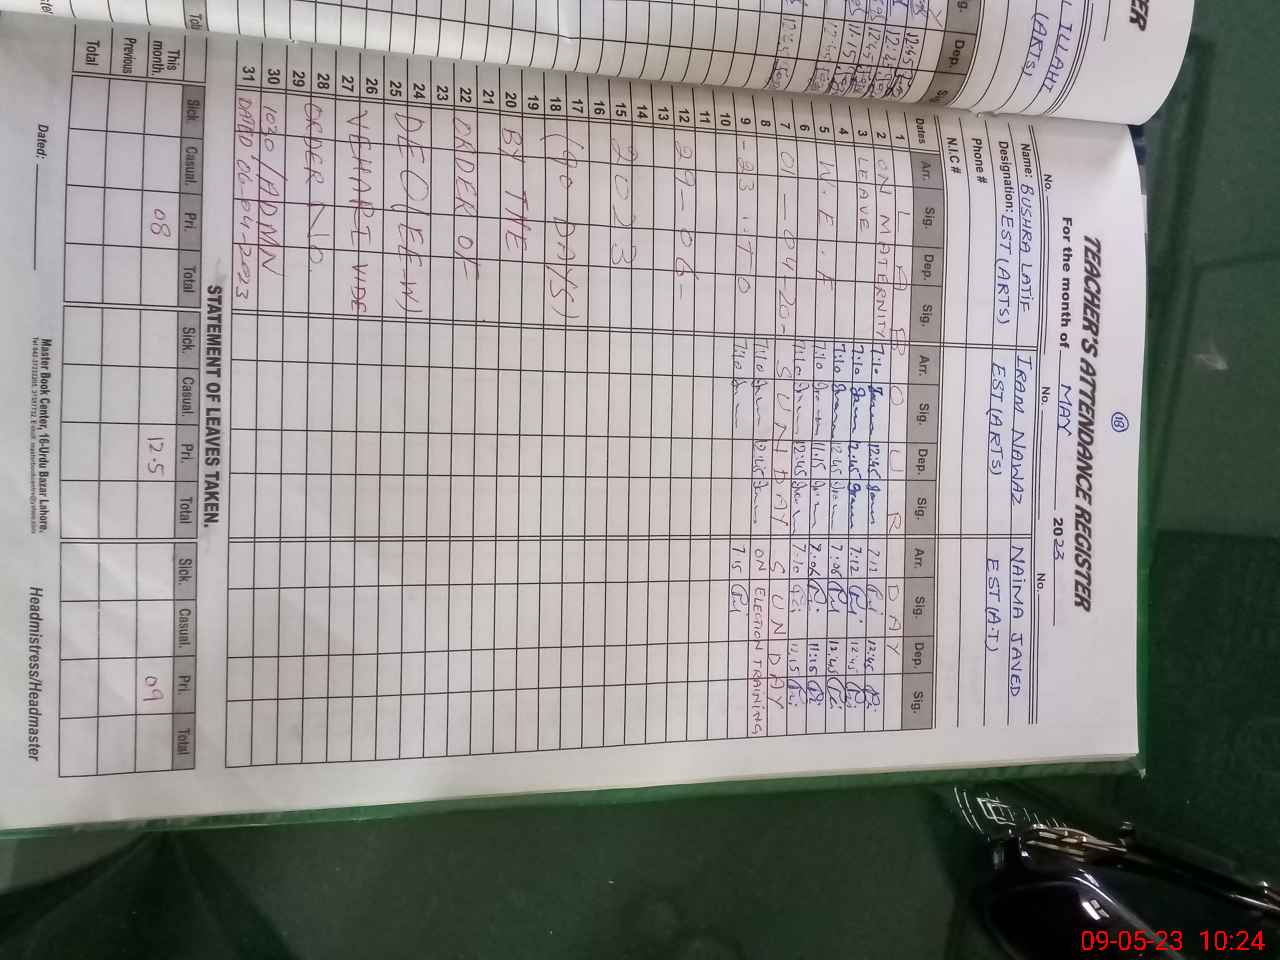 18
TEACHER'S ATTENDANCE REGISTER
For the month of MAY 2023
No. No. No.
Name: BUSHRA LATIF IRAM NAWAZ NAINA JAVED
Designation: EST (ARTS) EST (ARTS) EST (A.T)
Phone #
N.I.C #
Dates Arr. Sig. Dep. Sig. Arr. Sig. Dep. Sig. Arr. Sig. Dep. Sig.
1 L A B O U R D A Y
2 ON MATERNITY 7:10 12:45 7:12 12:45
3 LEAVE 7:10 12:45 7:12 12:45
4 7:10 12:45 7:06 12:45
5 W. E. F 7:10 11:15 7:06 11:15
6 7:10 12:45 7:10
7 01-04-20- S U N D A Y S U N D A Y
8 7:10 12:45 ON ELECTION TRAINING
9 -23 TO 7:10 7:15
10
11
12 29-06-
13
14
15 2023
16
17
18 (90 DAYS)
19
20 BY THE
21
22 ORDER OF
23
24 DEO(EE-W)
25
26 VEHARI VIDE
27
28 ORDER NO.
29
30 1030/ADMN
31 DATED 06-04-2023
STATEMENT OF LEAVES TAKEN.
Sick. Casual. Pri. Total Sick. Casual. Pri. Total Sick. Casual. Pri. Total
This month. 08 12.5 09
Previous
Total
Dated:
Master Book Center, 16-Urdu Bazar Lahore.
Headmistress/Headmaster
(ARTS)
09-05-23 10:24